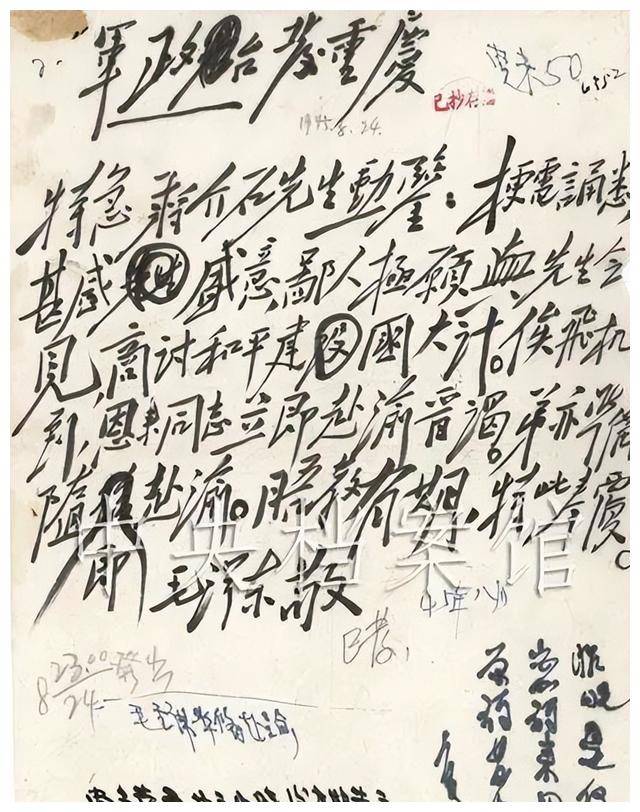 軍政台 發重慶
50
6552
已抄存
1945.8.24.
特急 蔣介石先生勳鑒：梗電誦悉，
甚感盛意。鄙人極願與先生会
見，商討和平建國大計。俟飛机
到，恩来同志立即赴渝晋謁。弟亦準備
随即赴渝。晤教有期，特此奉覆。
毛澤东敬
中央档案馆
45年八月
已发，
23.00 發出
8/24